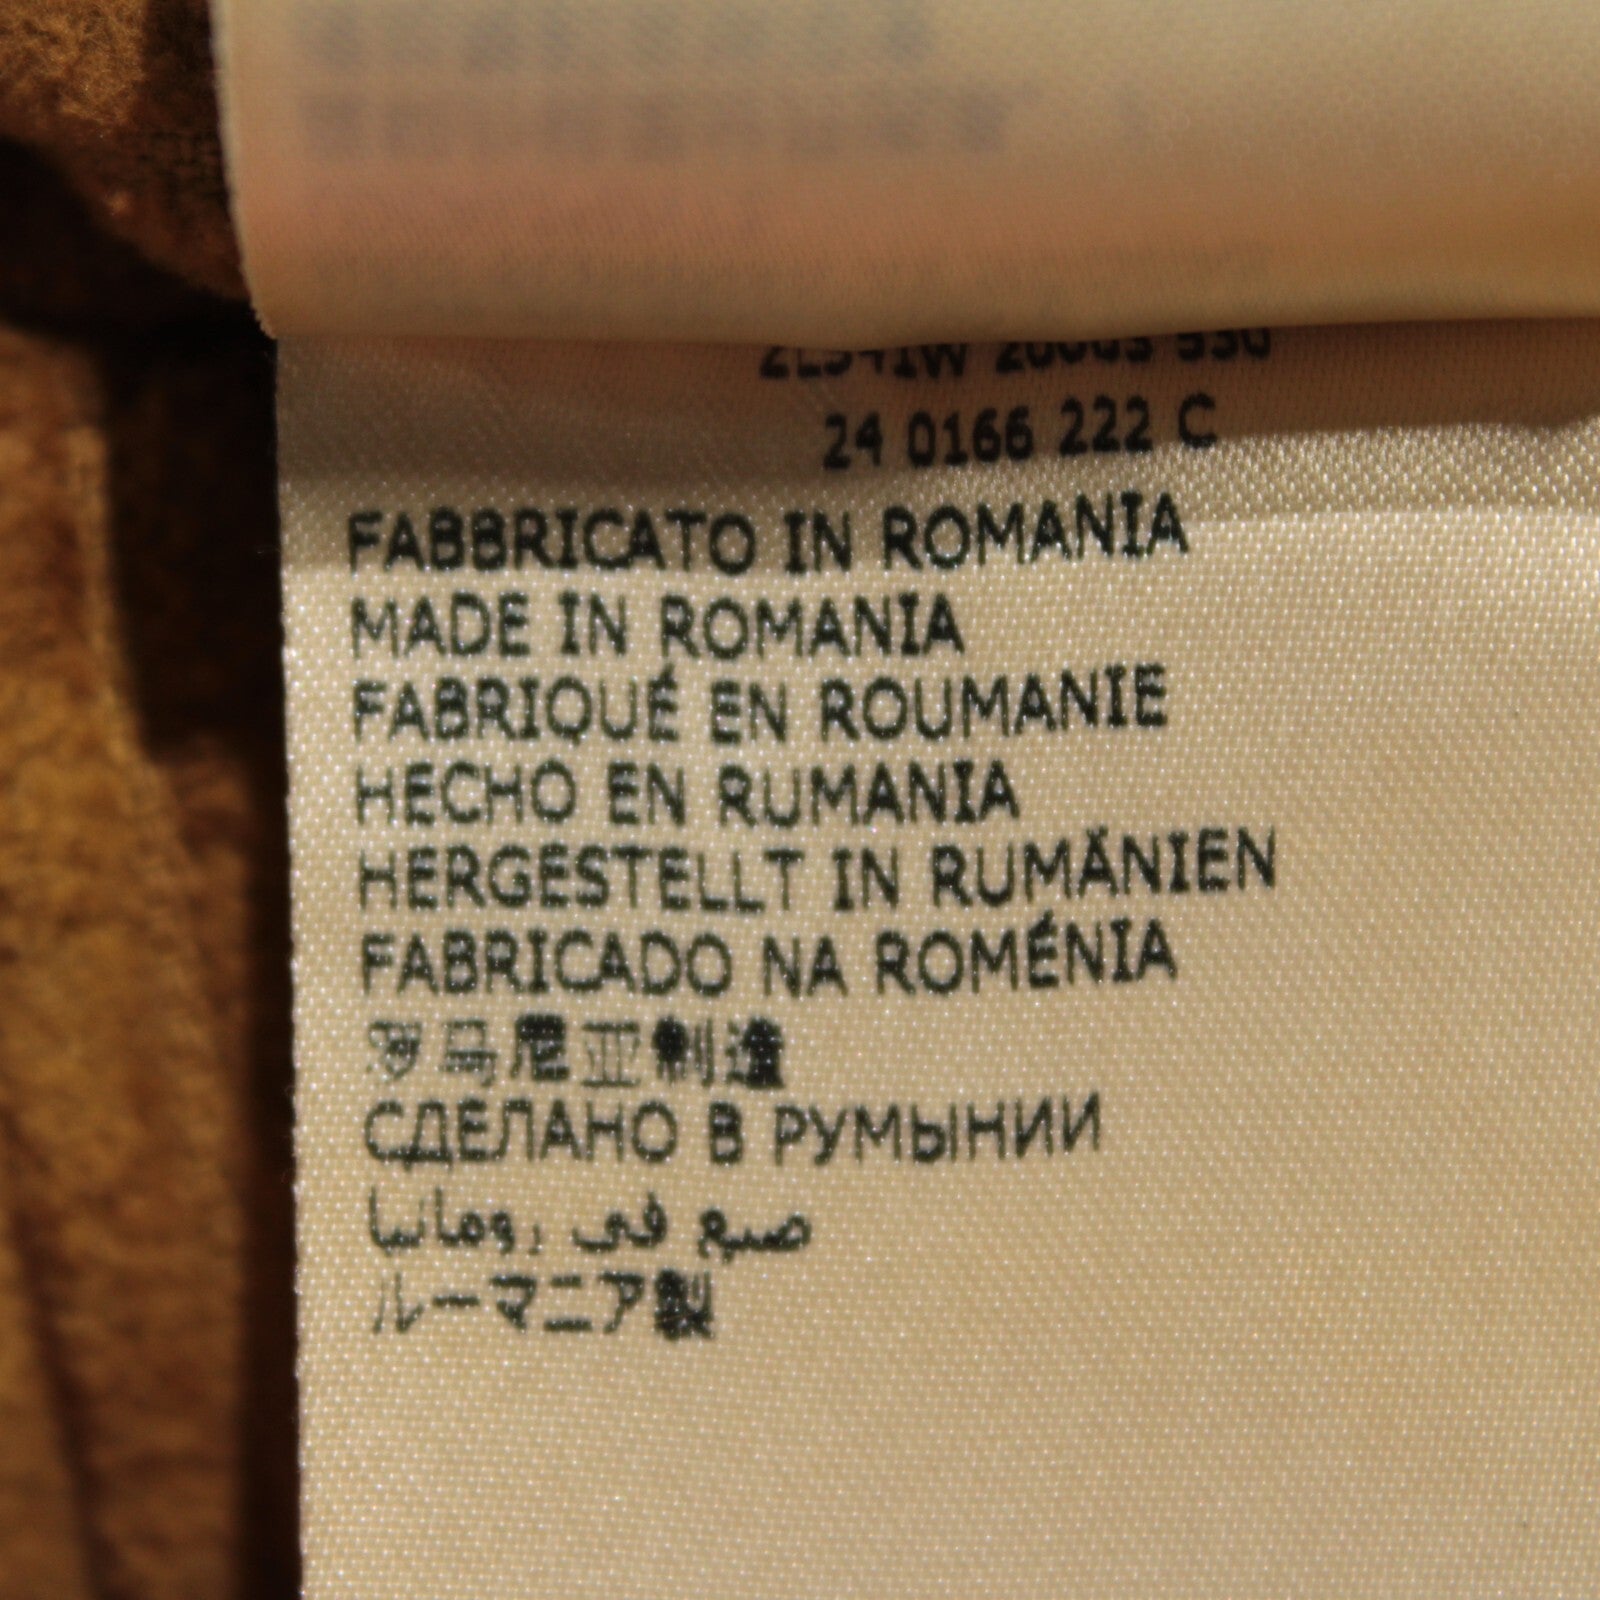 24 0166 222 C
FABBRICATO IN ROMANIA
MADE IN ROMANIA
FABRIQUÉ EN ROUMANIE
HECHO EN RUMANIA
HERGESTELLT IN RUMÄNIEN
FABRICADO NA ROMÉNIA
罗马尼亚制造
СДЕЛАНО В РУМЫНИИ
صنع في رومانيا
ルーマニア製